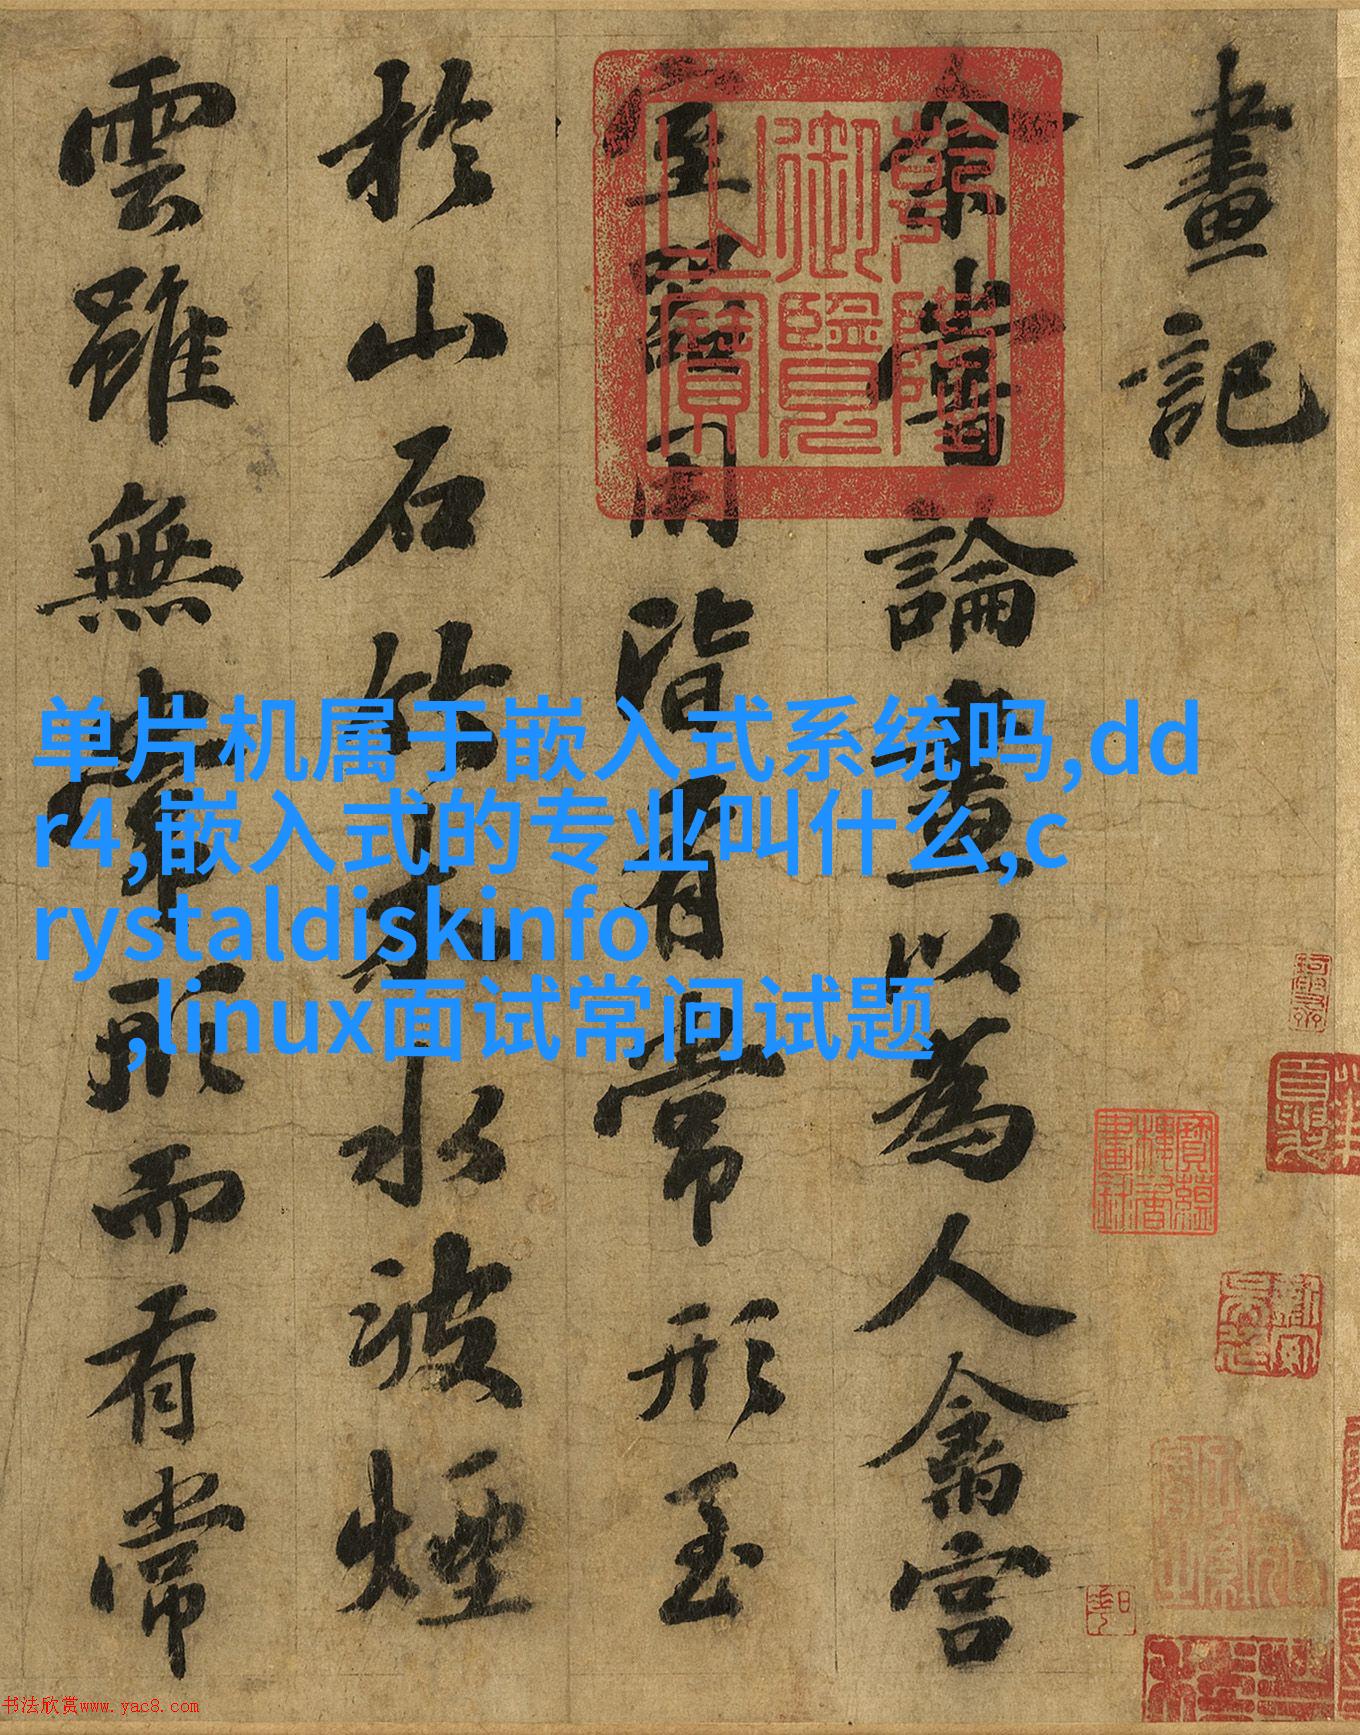 畫記
余嘗論畫以為人禽宮
室器用皆有常形至
於山石竹木水波煙
雲雖無常形而有常
乾隆
御覽
之寶
单片机属于嵌入式系统吗,dd
r4,嵌入式的专业叫什么,c
rystaldiskinfo
,linux面试常问试题
书法欣赏www.yac8.com